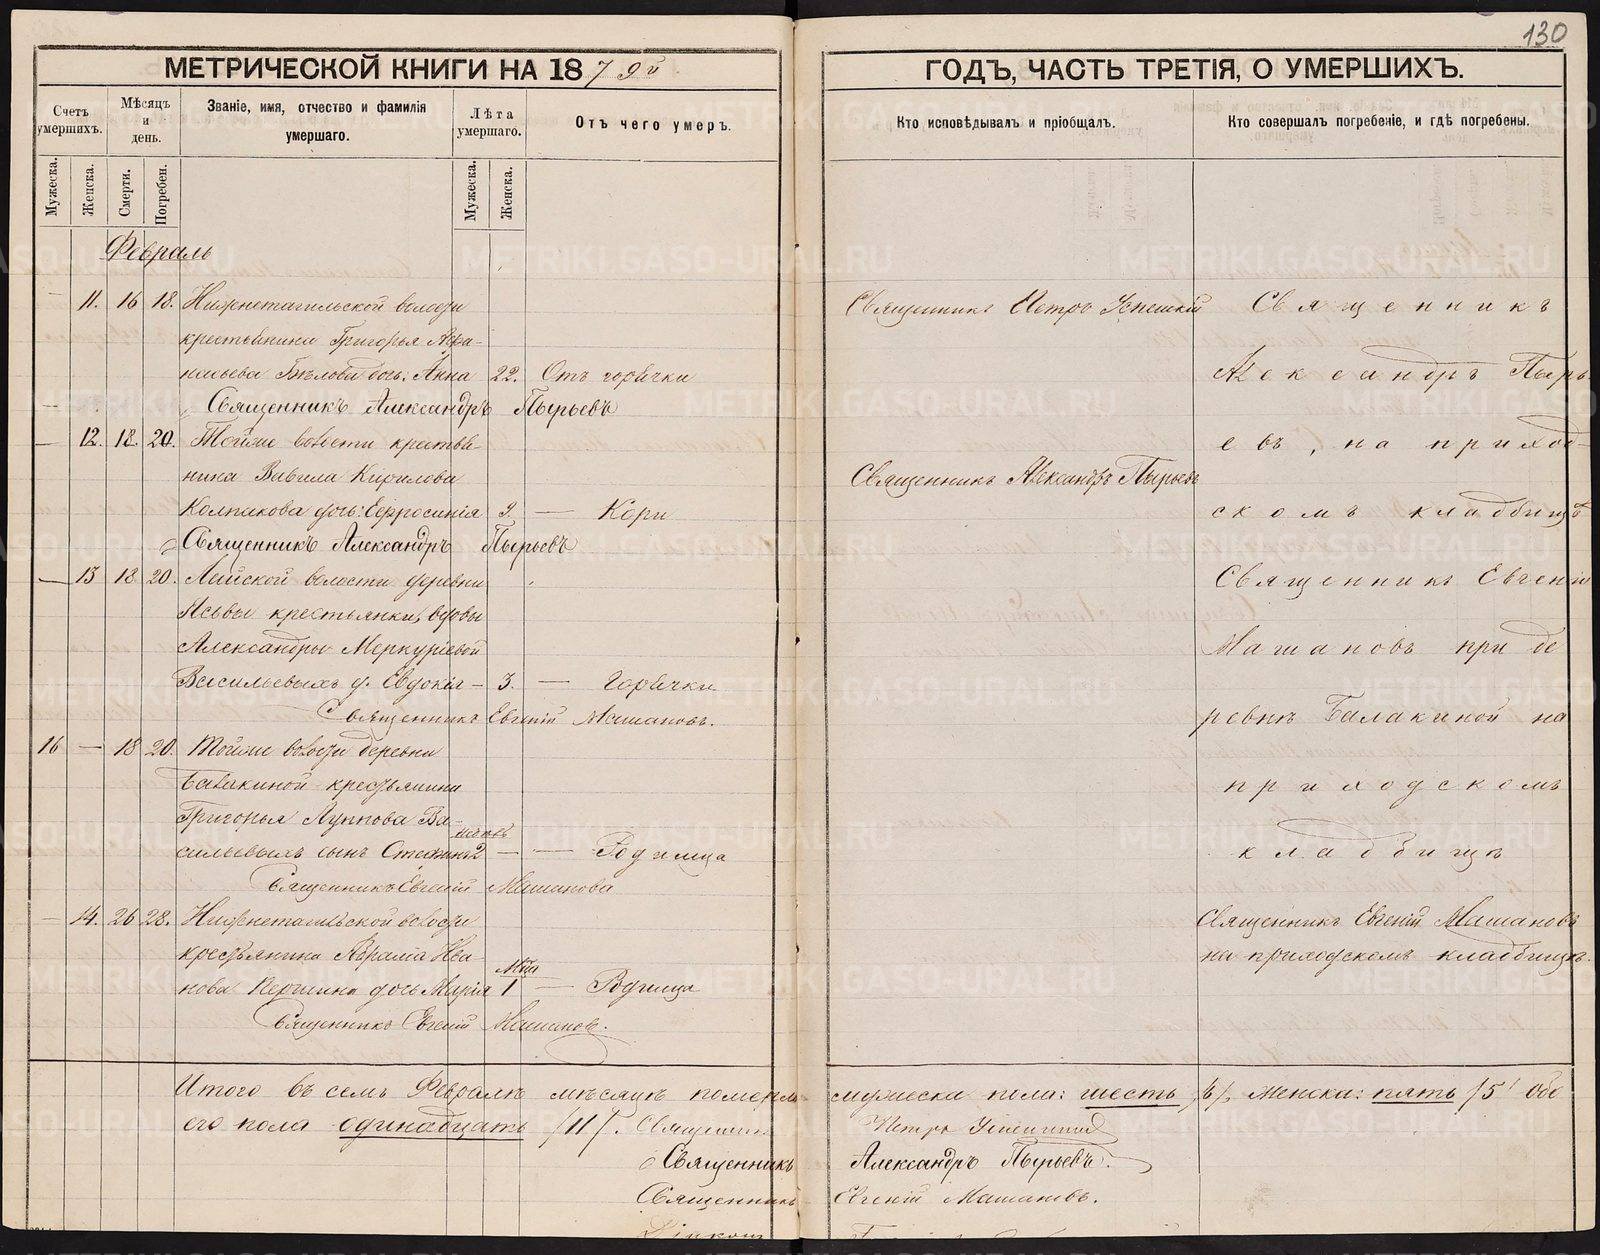 130
МЕТРИЧЕСКОЙ КНИГИ НА 1879й
ГОДЪ, ЧАСТЬ ТРЕТІЯ, О УМЕРШИХЪ.
Счетъ умершихъ.
Мѣсяцъ и день.
Званіе, имя, отчество и фамилія умершаго.
Лѣта умершаго.
Отъ чего умеръ.
Кто исповѣдывалъ и пріобщалъ.
Кто совершалъ погребеніе, и гдѣ погребены.
Мужеска.
Женска.
Смерти.
Погребен.
Мужеска.
Женска.
Февраль
— 11. 16 18. Нижнетагильской волости
крестьянина Григорья
Бѣлова дочь: Анна 22. Отъ горячки
Священникъ Александръ Пырьевъ
— 12. 18. 20. Тойже волости крестья-
нина Вавила Кирилова
Колпакова дочь: Евфросинія 9. — Кори
Священникъ Александръ Пырьевъ
— 13 18 20. Лайской волости деревни
крестьянки, вдовы
Александры Меркуріевой
Васильевыхъ д. Евдокія — 3. — Горячки
Священникъ Евгеній Машановъ.
16 — 18 20. Тойже волости деревни
Балакиной крестьянина
Григорья Луппова Ва-
сильевыхъ сынъ 2 — — Родимца
Священникъ Евгеній Машановъ
— 14. 26 28. Нижнетагильской волости
крестьянина Аврама Ива-
нова дочь Марія 1 — Родимца
Священникъ Евгеній Машановъ.
Священникъ Петръ
Священникъ Александръ Пырьевъ
Священникъ
Александръ Пырь-
евъ, на приход-
скомъ кладбищѣ
Священникъ Евгеній
Машановъ при де
ревнѣ Балакиной на
приходскомъ
кладбищѣ
Священникъ Евгеній Машановъ
на приходскомъ кладбищѣ.
Итого въ семъ Февралѣ мѣсяцѣ померло мужеска пола: шесть /6/, женска: пять /5/ обо
его пола одинадцать /11/. Священникъ Петръ
Священникъ Александръ Пырьевъ.
Священникъ Евгеній Машановъ.
METRIKI.GASO-URAL.RU